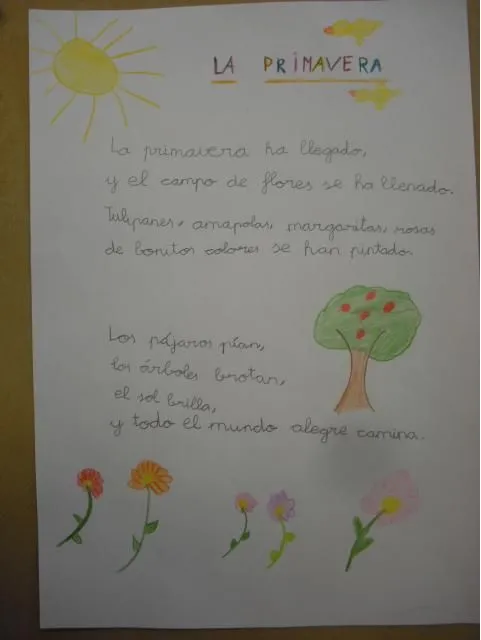 LA PRIMAVERA
La primavera ha llegado,
y el campo de flores se ha llenado.
Tulipanes, amapolas, margaritas, rosas
de bonitos colores se han pintado.
Los pájaros pían,
los árboles brotan,
el sol brilla,
y todo el mundo alegre camina.